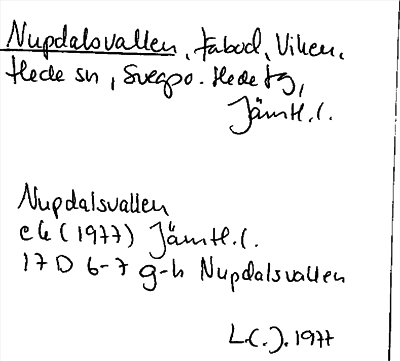 Nupdalsvallen, fäbod, Viken,
Hede sn, Svegps. Hede tg,
Jämtl. l.
Nupdalsvallen
ek (1977) Jämtl. l.
17 D 6-7 g-h Nupdalsvallen
L.C.J. 1977